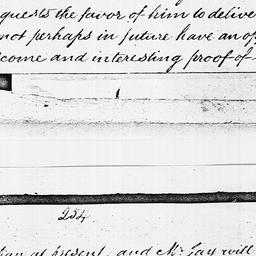 quests the favor of him to delive
not perhaps in future have an op
come and interesting proof of
254
tion at present, and Mr. Jay will